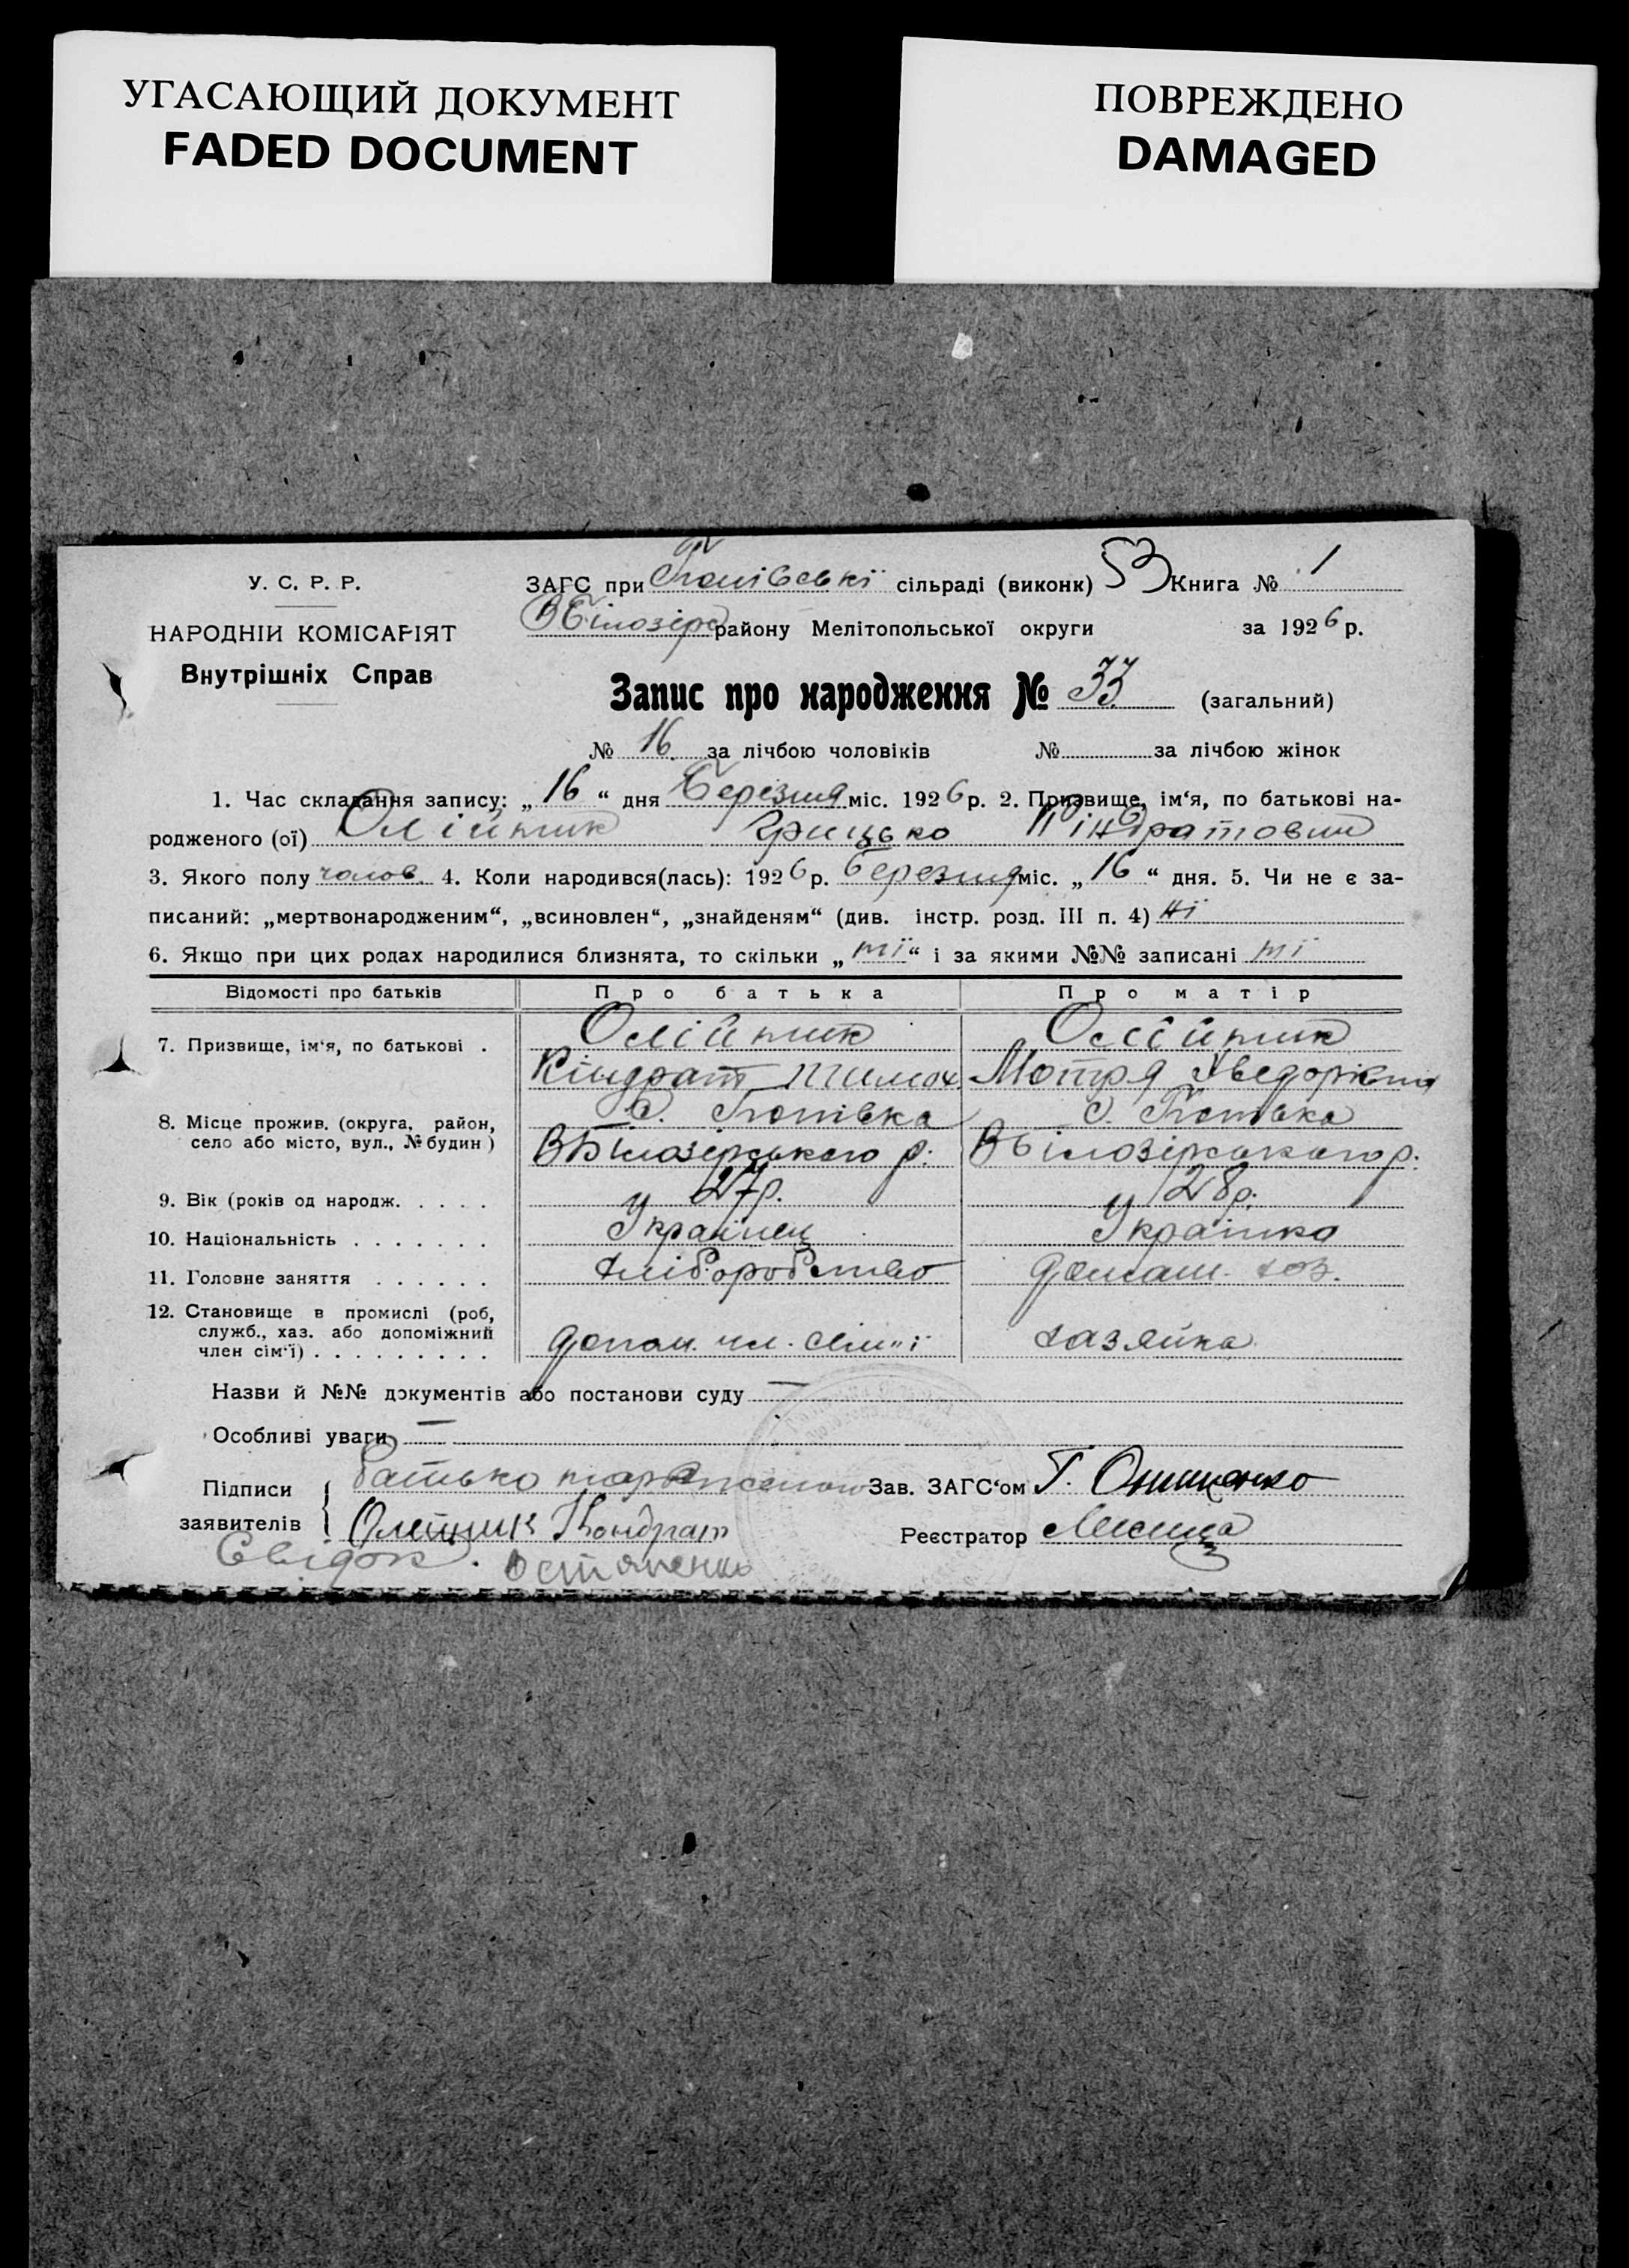 УГАСАЮЩИЙ ДОКУМЕНТ
FADED DOCUMENT
ПОВРЕЖДЕНО
DAMAGED
У. С. Р. Р.
НАРОДНІЙ КОМІСАРІЯТ
Внутрішніх Справ
ЗАГС при сільраді (виконк) 53 Книга № 1
ВБілозірс району Мелітопольської округи за 1926 р.
Запис про народження № 33 (загальний)
№ 16 за лічбою чоловіків № за лічбою жінок
1. Час складання запису: „16“ дня Березня міс. 1926 р. 2. Призвище, ім‘я, по батькові на-
родженого (ої) Олійник Грицько Кіндратович
3. Якого полу чолов. 4. Коли народився(лась): 1926 р. березня міс. „16“ дня. 5. Чи не є за-
писаний: „мертвонародженим“, „всиновлен“, „знайденям“ (див. інстр. розд. III п. 4) ні
6. Якщо при цих родах народилися близнята, то скільки „ні“ і за якими №№ записані ні
Відомості про батьків Про батька Про матір
7. Призвище, ім‘я, по батькові . Олійник Олійник
Кіндрат Тимох. Мотря
8. Місце прожив. (округа, район, с. Попівка с. Попівка
село або місто, вул., № будин) ВБілозірського р. ВБілозірського р.
9. Вік (років од народж. . . . . 27р. 28р.
10. Національність . . . . . . . Українец Українка
11. Головне заняття . . . . . . Хліборобство домаш. хоз.
12. Становище в промислі (роб,
служб., хаз. або допоміжний
член сім‘ї) . . . . . . . . . допом. чл. сім"ї хазяйка
Назви й №№ документів або постанови суду —
Особливі уваги —
Підписи
заявителів
Батько
Олейник Кондрат
Свідок.
Зав. ЗАГС‘ом Г. Онищенко
Реєстратор